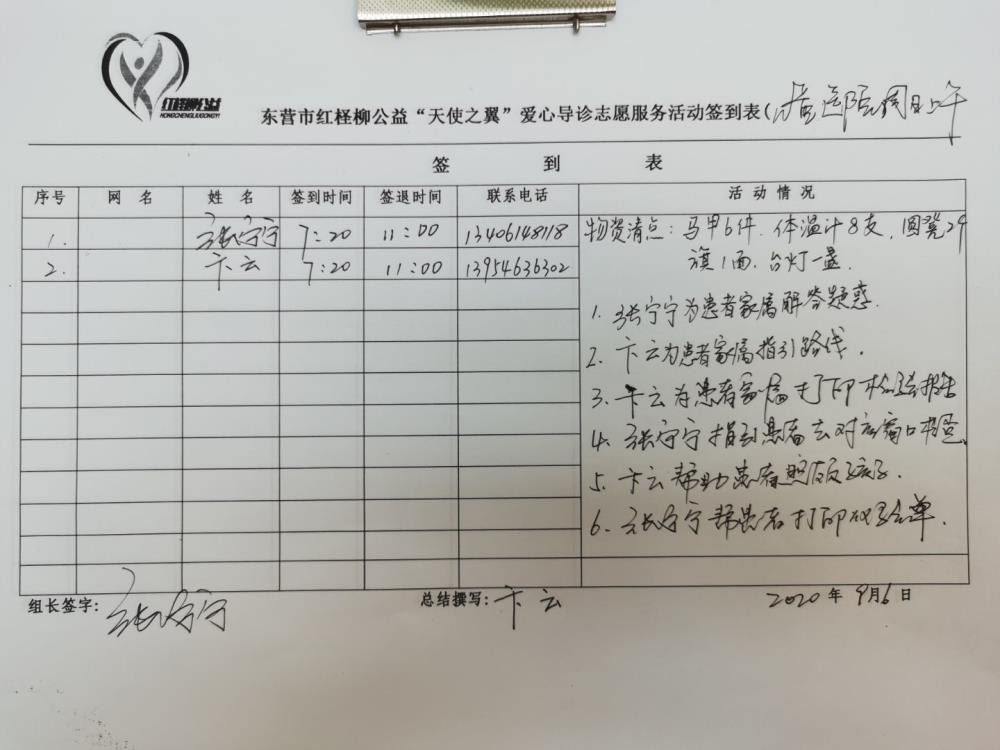 红柽柳公益
HONGCHENGLIUGONGYI
东营市红柽柳公益“天使之翼”爱心导诊志愿服务活动签到表(医院周日上午
签 到 表
序号 网 名 姓 名 签到时间 签退时间 联系电话 活 动 情 况
1. 张宁宁 7:20 11:00 13406148118 物资清点：马甲6件. 体温计8支, 圆凳2个
2. 卞云 7:20 11:00 13954636302 旗1面. 台灯一盏.
1. 张宁宁为患者家属解答疑惑.
2. 卞云为患者家属指引路线.
3. 卞云为患者家属打印检验报告
4. 张宁宁指引患者去对应窗口
5. 卞云帮助患者照顾孩子.
6. 张宁宁帮患者打印化验单.
组长签字: 张宁宁 总结撰写: 卞云 2020年9月6日